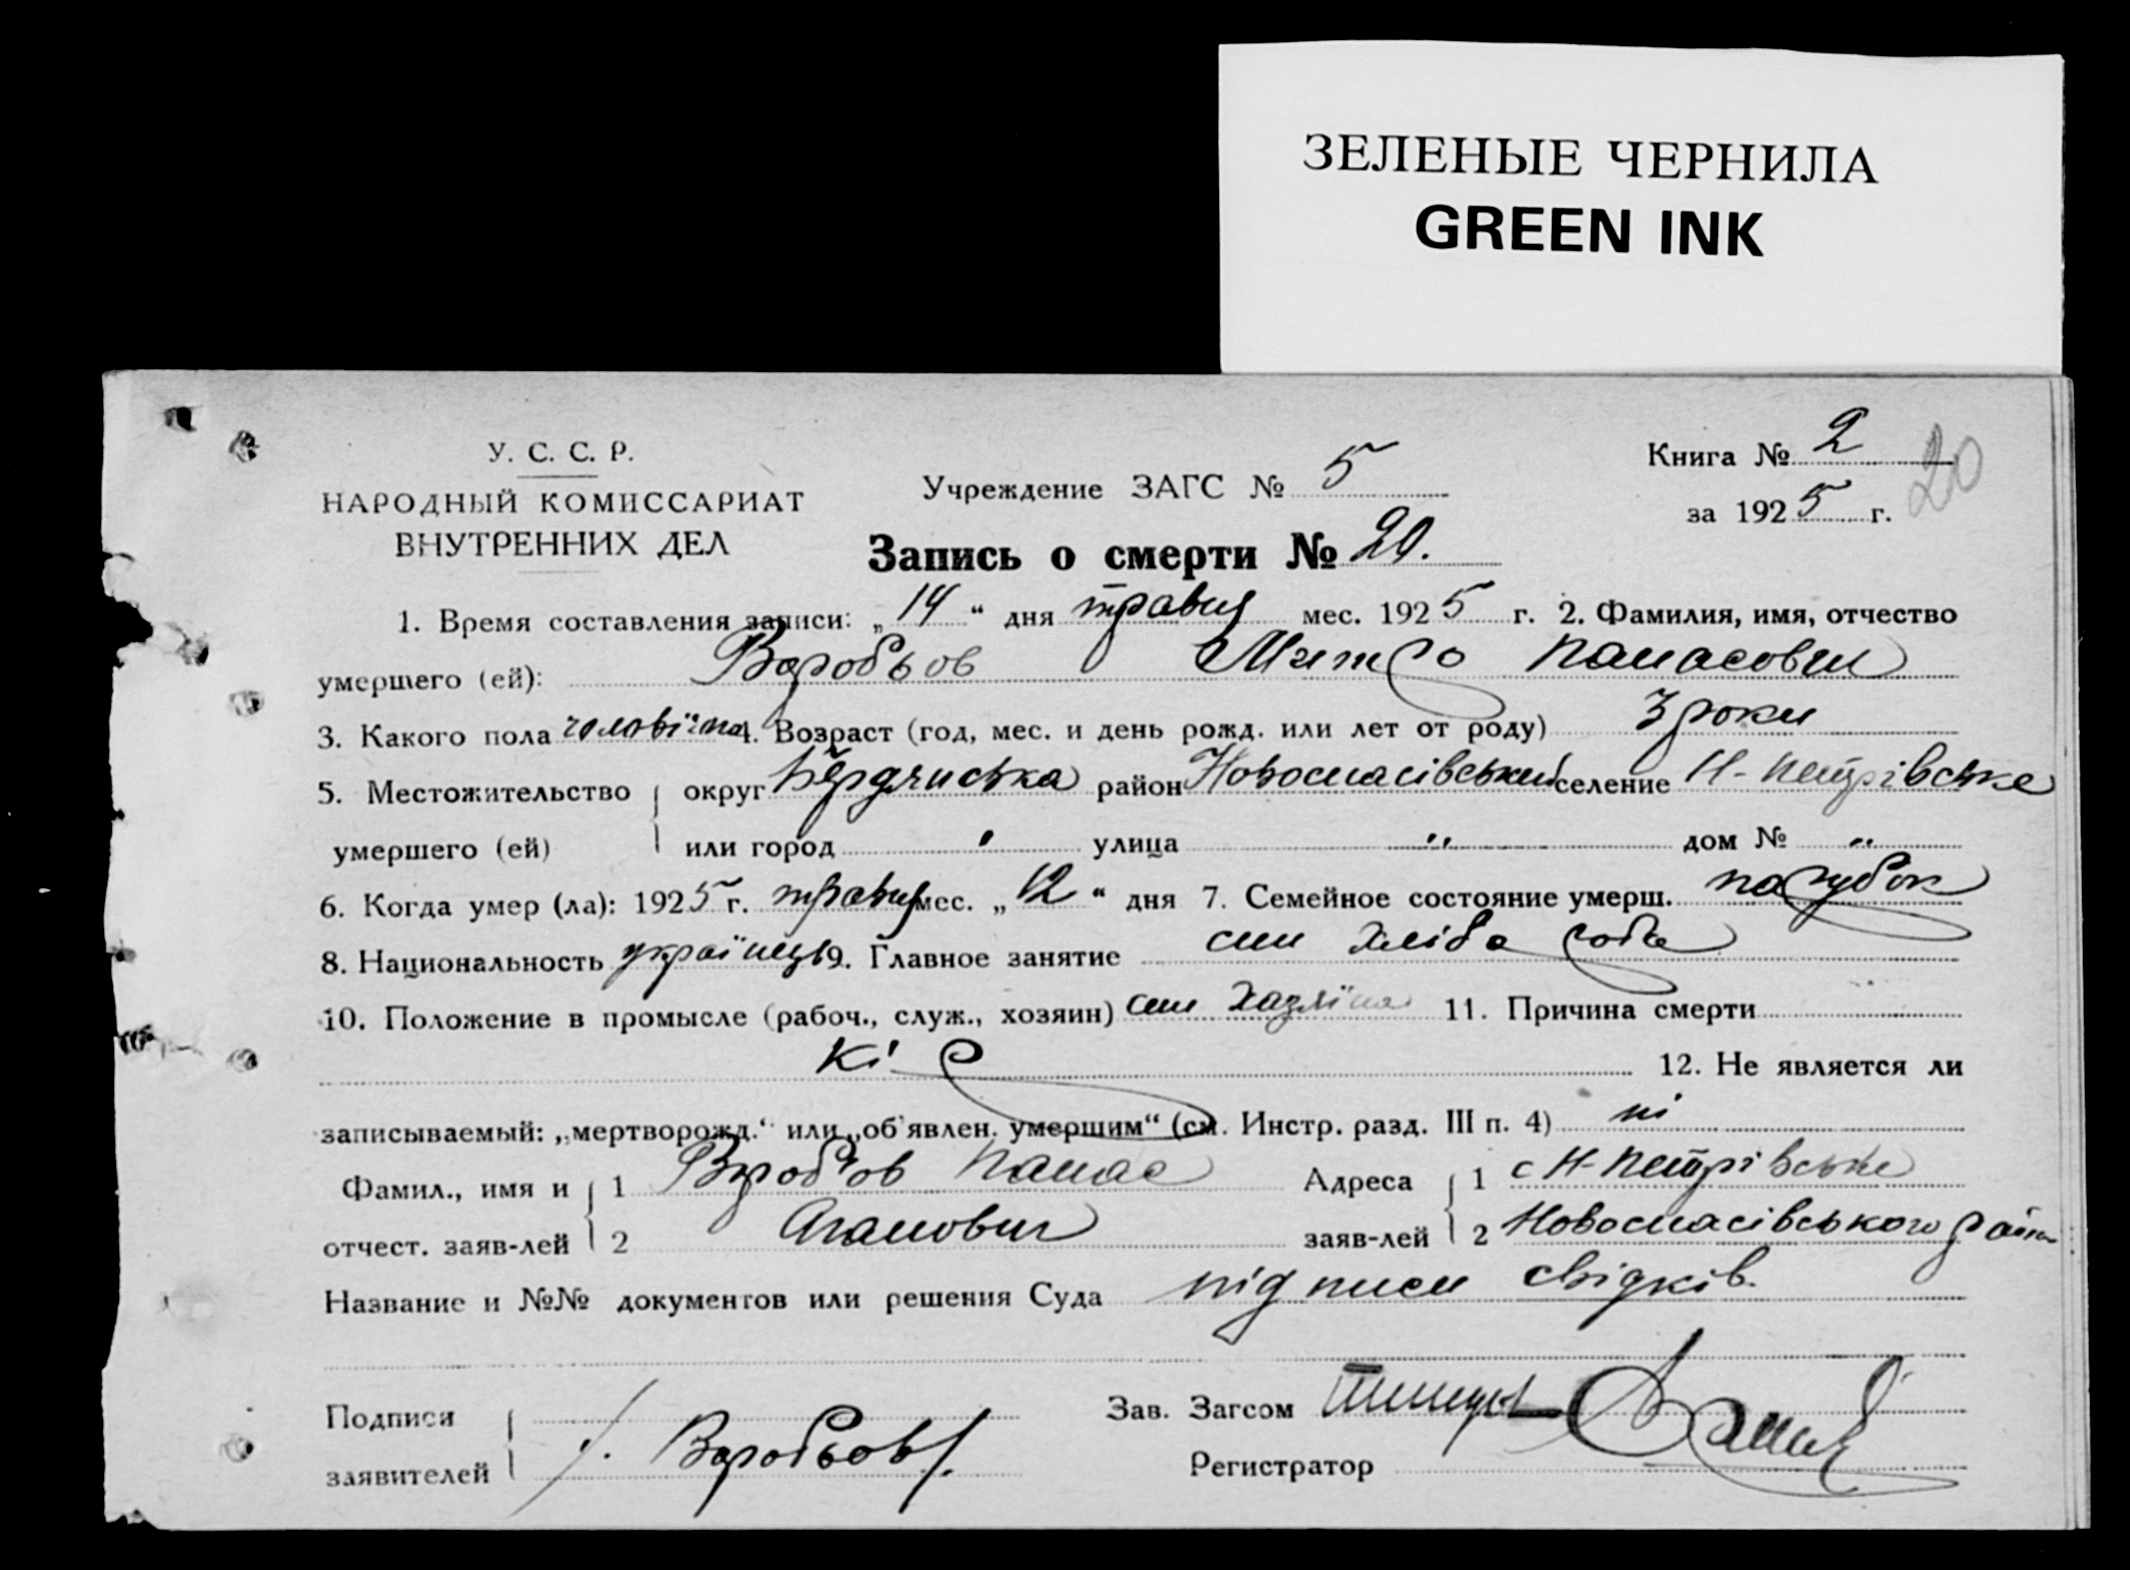 ЗЕЛЕНЫЕ ЧЕРНИЛА
GREEN INK
У. С. С. Р.
НАРОДНЫЙ КОМИССАРИАТ
ВНУТРЕННИХ ДЕЛ
Учреждение ЗАГС № 5
Книга № 2
20
за 1925 г.
Запись о смерти № 20.
1. Время составления записи: „14“ дня травня мес. 1925 г. 2. Фамилия, имя, отчество
умершего (ей): Воробьов Митро Панасович
3. Какого пола 4. Возраст (год, мес. и день рожд. или лет от роду) 3 роки
5. Местожительство округ район Новоспасівський селение Н-Петрівське
умершего (ей) или город " улица " дом № "
6. Когда умер (ла): 1925 г. травня мес. „12“ дня 7. Семейное состояние умерш. парубок
8. Национальность українець 9. Главное занятие син хлібороба
10. Положение в промысле (рабоч., служ., хозяин) син хазяїна 11. Причина смерти
кір 12. Не является ли
записываемый: „мертворожд.“ или „об'явлен. умершим“ (см. Инстр. разд. III п. 4) ні
Фамил., имя и 1 Воробьов Панас Адреса 1 с Н-Петрівське
отчест. заяв-лей 2 заяв-лей 2 Новоспасівського район
Название и №№ документов или решения Суда підписи свідків.
Подписи Зав. Загсом
заявителей /. Воробьов /. Регистратор